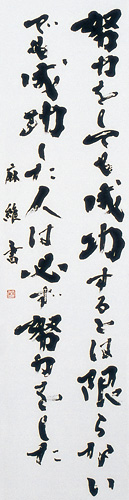 努力をしても成功するとは限らない
でも成功した人は必ず努力をした
麻維書